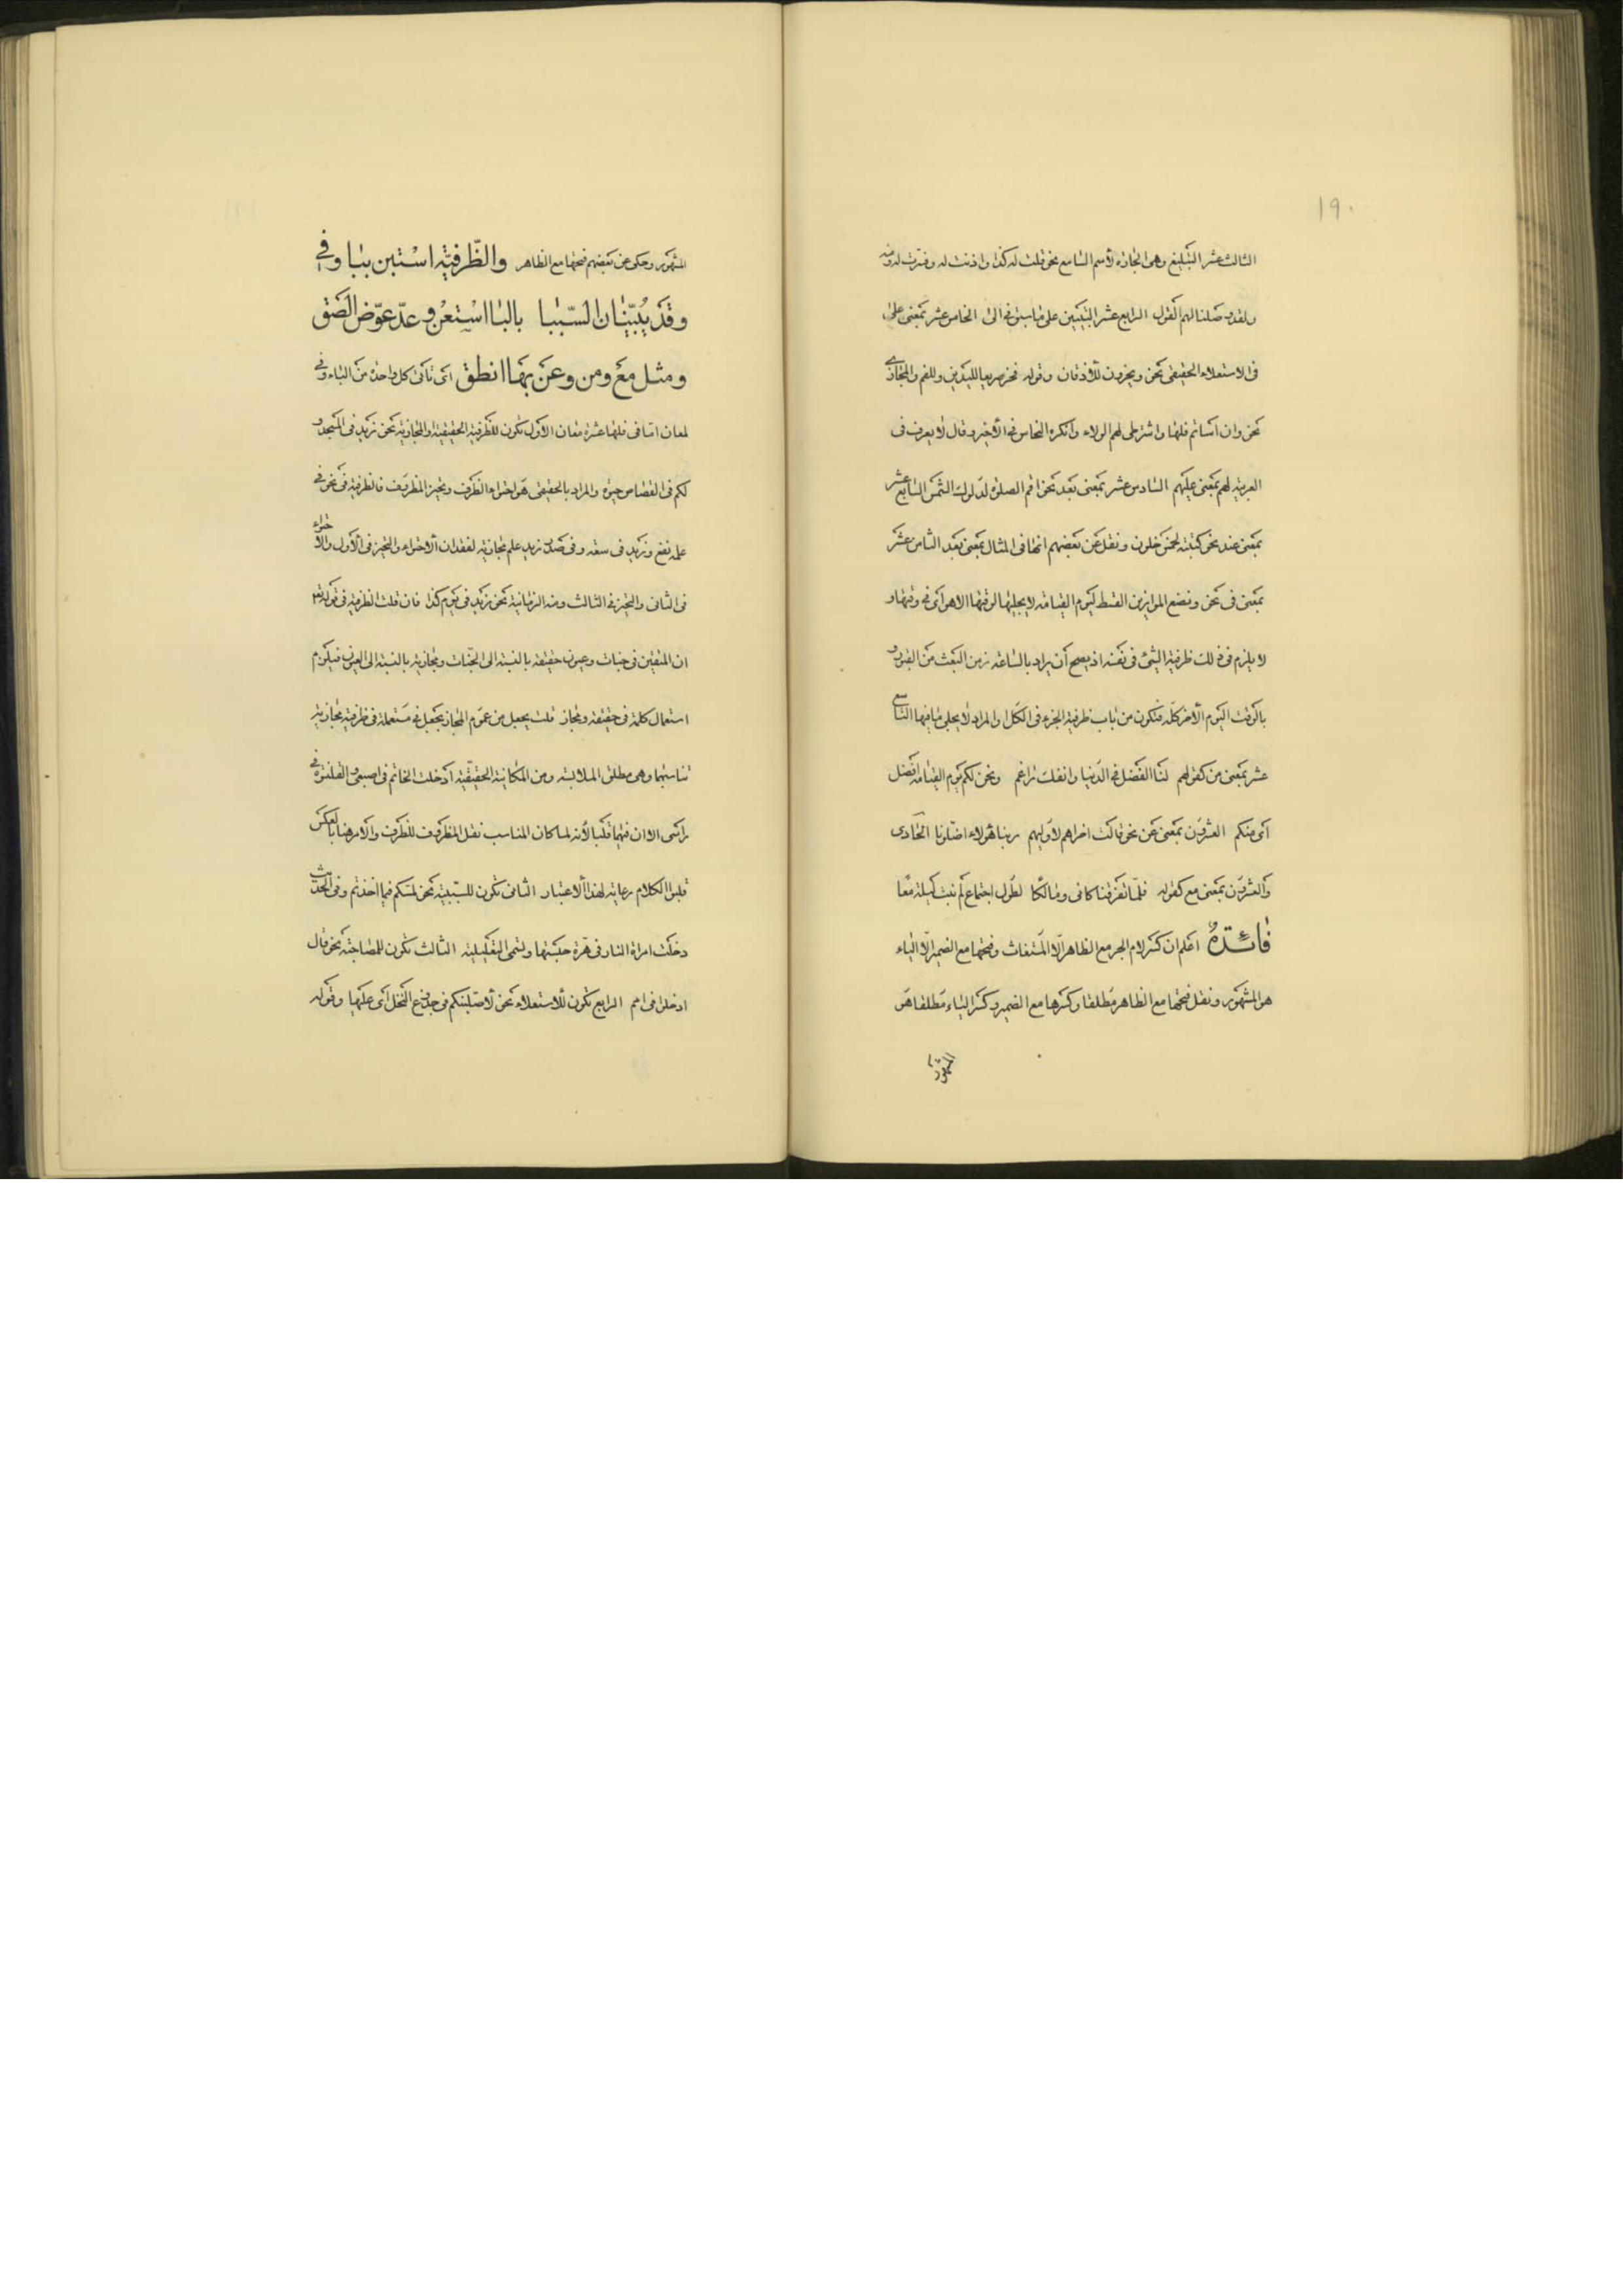 ١٩٠
الثالث عشر التبليغ وهى الجارة لأسم السامع نحو قلت له كذا واذنت له وفسرت له ومنه
ولقد وصلنا لهم القول الرابع عشر التبيين على ما سبق فى الى الخامس عشر بمعنى على
فى الاستعلاء الحقيقى نحو ويخرون للأذقان وقوله فخر صريعا لليدين وللفم والمجازى
نحو وان أسأتم فلها واشترطى لهم الولاء وأنكره النحاس فى الأخير وقال لا يعرف فى
العربية لهم بمعنى عليهم السادس عشر بمعنى بعد نحو اقم الصلوة لدلوك الشمس السابع عشر
بمعنى عند نحو كتبته لخمس خلون ونقل عن بعضهم انها فى المثال بمعنى بعد الثامن عشر
بمعنى فى نحو ونضع الموازين القسط ليوم القيامة لا يجليها لوقتها الا هو أى فى وقتها و
لا يلزم فى ذلك ظرفية الشئ فى نفسه اذ يصح أن يراد بالساعة زمن البعث من القبور و
بالوقت اليوم الآخر كله فتكون من باب ظرفية الجزء فى الكل او المراد لا يجلى ما فيها التاسع
عشر بمعنى من كقولهم لنا الفضل فى الدنيا وانفك راغم ونحن لكم يوم القيامة افضل
أى منكم العشرون بمعنى عن نحو قالت اخراهم لأوليهم ربنا هؤلاء اضلونا الحادى
والعشرون بمعنى مع كقوله فلما تفرقنا كانى ومالكا لطول اجتماع لم نبت ليلة معا
فائدة اعلم ان كسر لام الجر مع الظاهر الا المستغاث وفتحها مع الضمير الا الياء
هو المشهور ونقل فتحها مع الظاهر مطلقا وكسرها مع الضمير وكسر الياء مطلقا هو
المشهور
المشهور وحكى عن بعضهم فتحها مع الظاهر والظرفية استبن ببا وفى
وقد يبينان السببا بالبا استعن وعد عوض الصق
ومثل مع ومن وعن بها انطق اى تأتى كل واحدة من الباء وفى
لمعان اما فى فلها عشرة معان الأول تكون للظرفية الحقيقية والمجازية نحو زيد فى المسجد و
لكم فى القصاص حيوة والمراد بالحقيقى هو احتواء الظرف وتحيز المظروف فالظرفية فى نحو فى
علمه نفع وزيد فى سعة وفى صدر زيد علم مجازية لفقدان الاحتواء والتحيز فى الأول والاحتواء
فى الثانى والتحيز فى الثالث ومنه الزمانية نحو زيد فى يوم كذا فان قلت الظرفية فى قوله تع
ان المتقين فى جنات وعيون حقيقة بالنسبة الى الجنات ومجازية بالنسبة الى العيون فيلزم
استعمال كلمة فى حقيقة ومجاز قلت يجعل من عموم المجاز بجعل فى مستعملة فى ظرفية مجازية
تناسبهما وهى مطلق الملابسة ومن المكانية الحقيقية أدخلت الخاتم فى اصبعى والقلنسوة فى
رأسى الا ان فيهما قلبا لأنه لما كان المناسب نقل المظروف للظرف والأمر هنا بالعكس
قلبوا الكلام رعاية لهذا الاعتبار الثانى تكون للسببية نحو لمسكم فيما اخذتم وفى الحديث
دخلت امراة النار فى هرة حبستها وتسمى التعليلية الثالث تكون للمصاحبة نحو قال
ادخلوا فى امم الرابع تكون للاستعلاء نحو لأصلبنكم فى جذوع النخل أى عليها وقوله